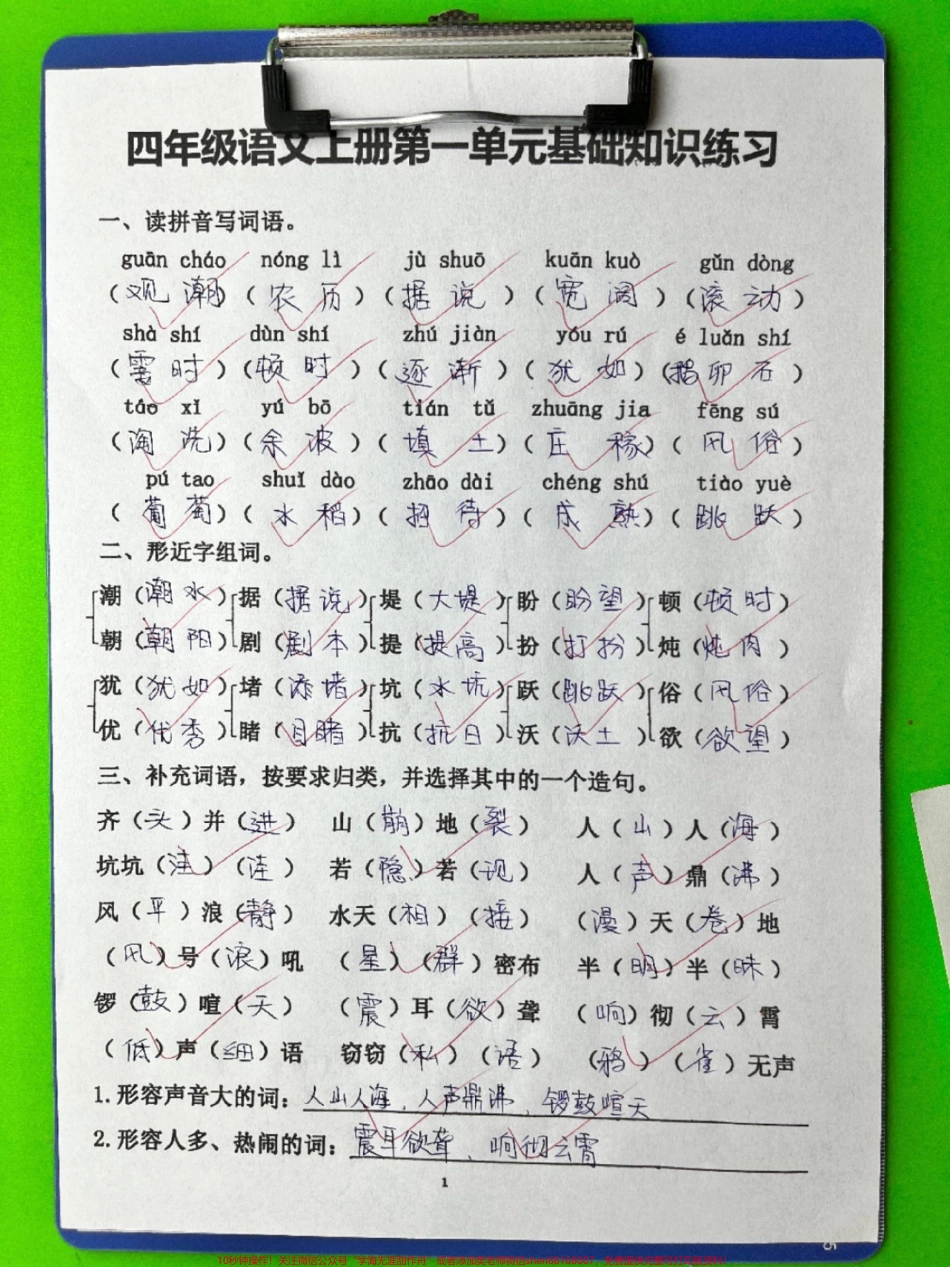 四年级语文上册第一单元基础知识练习
一、读拼音写词语。
guān cháo nóng lì jù shuō kuān kuò gǔn dòng
（观潮）（农历）（据说）（宽阔）（滚动）
shà shí dùn shí zhú jiàn yóu rú é luǎn shí
（霎时）（顿时）（逐渐）（犹如）（鹅卵石）
táo xǐ yú bō tián tǔ zhuāng jia fēng sú
（淘洗）（余波）（填土）（庄稼）（风俗）
pú tao shuǐ dào zhāo dài chéng shú tiào yuè
（葡萄）（水稻）（招待）（成熟）（跳跃）
二、形近字组词。
潮（潮水）据（据说）堤（大堤）盼（盼望）顿（顿时）
朝（朝阳）剧（剧本）提（提高）扮（打扮）炖（炖肉）
犹（犹如）堵（添堵）坑（水坑）跃（跳跃）俗（风俗）
优（优秀）睹（目睹）抗（抗日）沃（沃土）欲（欲望）
三、补充词语，按要求归类，并选择其中的一个造句。
齐（头）并（进） 山（崩）地（裂） 人（山）人（海）
坑坑（洼）（洼） 若（隐）若（现） 人（声）鼎（沸）
风（平）浪（静） 水天（相）（接） （漫）天（卷）地
（风）号（浪）吼 （星）（群）密布 半（明）半（昧）
锣（鼓）喧（天） （震）耳（欲）聋 （响）彻（云）霄
（低）声（细）语 窃窃（私）（语） （鸦）（雀）无声
1.形容声音大的词：人山人海、人声鼎沸、锣鼓喧天
2.形容人多、热闹的词：震耳欲聋、响彻云霄
1